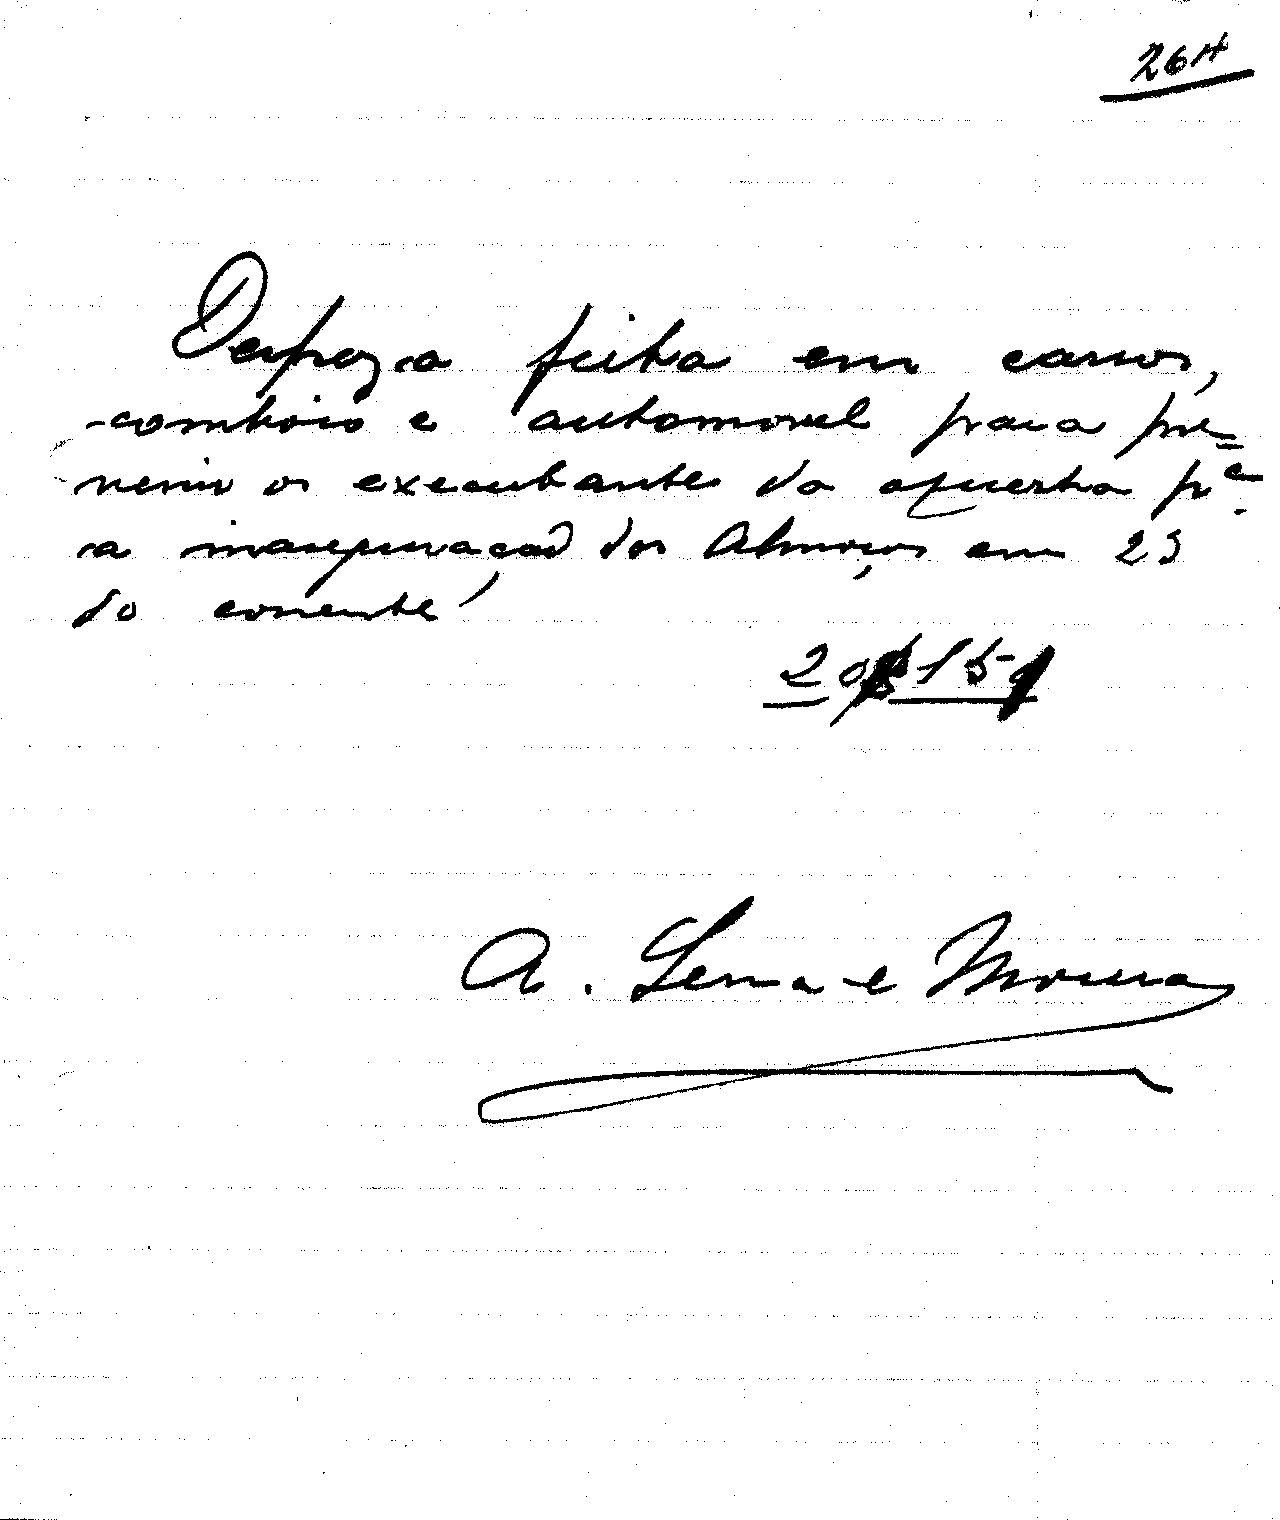 26A
Despeza feita em carros,
comboio e automovel para pre=
venir os executantes da orquestra p.ª
a inauguração dos Almoços em 23
do corrente
20$15
A. Lema e Moura